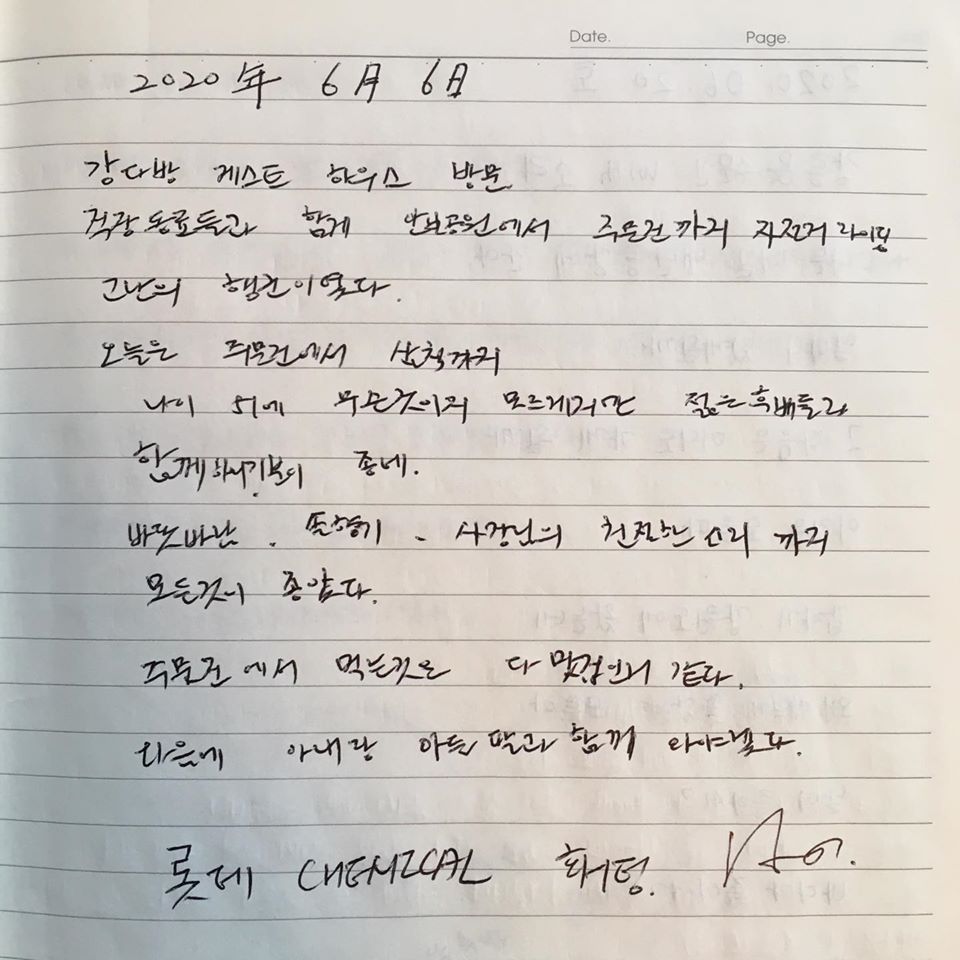 Date. Page.
2020年 6月 6日
강다방 게스트 하우스 방문.
직장동료들과 함께 에서 주문진까지 자전거 라이딩
고난의 행군이였다.
오늘은 주문진에서 삼척까지
나이 51에 무슨것이지 모르겠지만 젊은후배들과
함께하니기분이 좋네.
바닷바람. 솔향기. 사장님의 친절한 소리 까지
모든것이 좋았다.
주문진에서 먹는것은 다 맛집인거 같다.
다음에 아내랑 아들 딸과 함께 와야겠다.
롯데 CHEMICAL 화이팅.